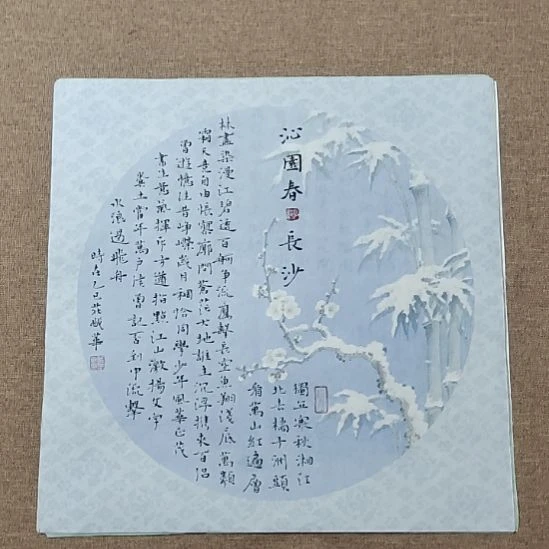 沁園春 長沙
獨立寒秋湘江
北去橘子洲頭
看萬山紅遍層
林盡染漫江碧透百舸爭流鷹擊長空魚翔淺底萬類
霜天竟自由悵寥廓問蒼茫大地誰主沉浮攜來百侶
曾遊憶往昔崢嶸歲月稠恰同學少年風華正茂
書生意氣揮斥方遒指點江山激揚文字
糞土當年萬戶侯曾記否到中流擊
水浪遏飛舟
時在乙巳華